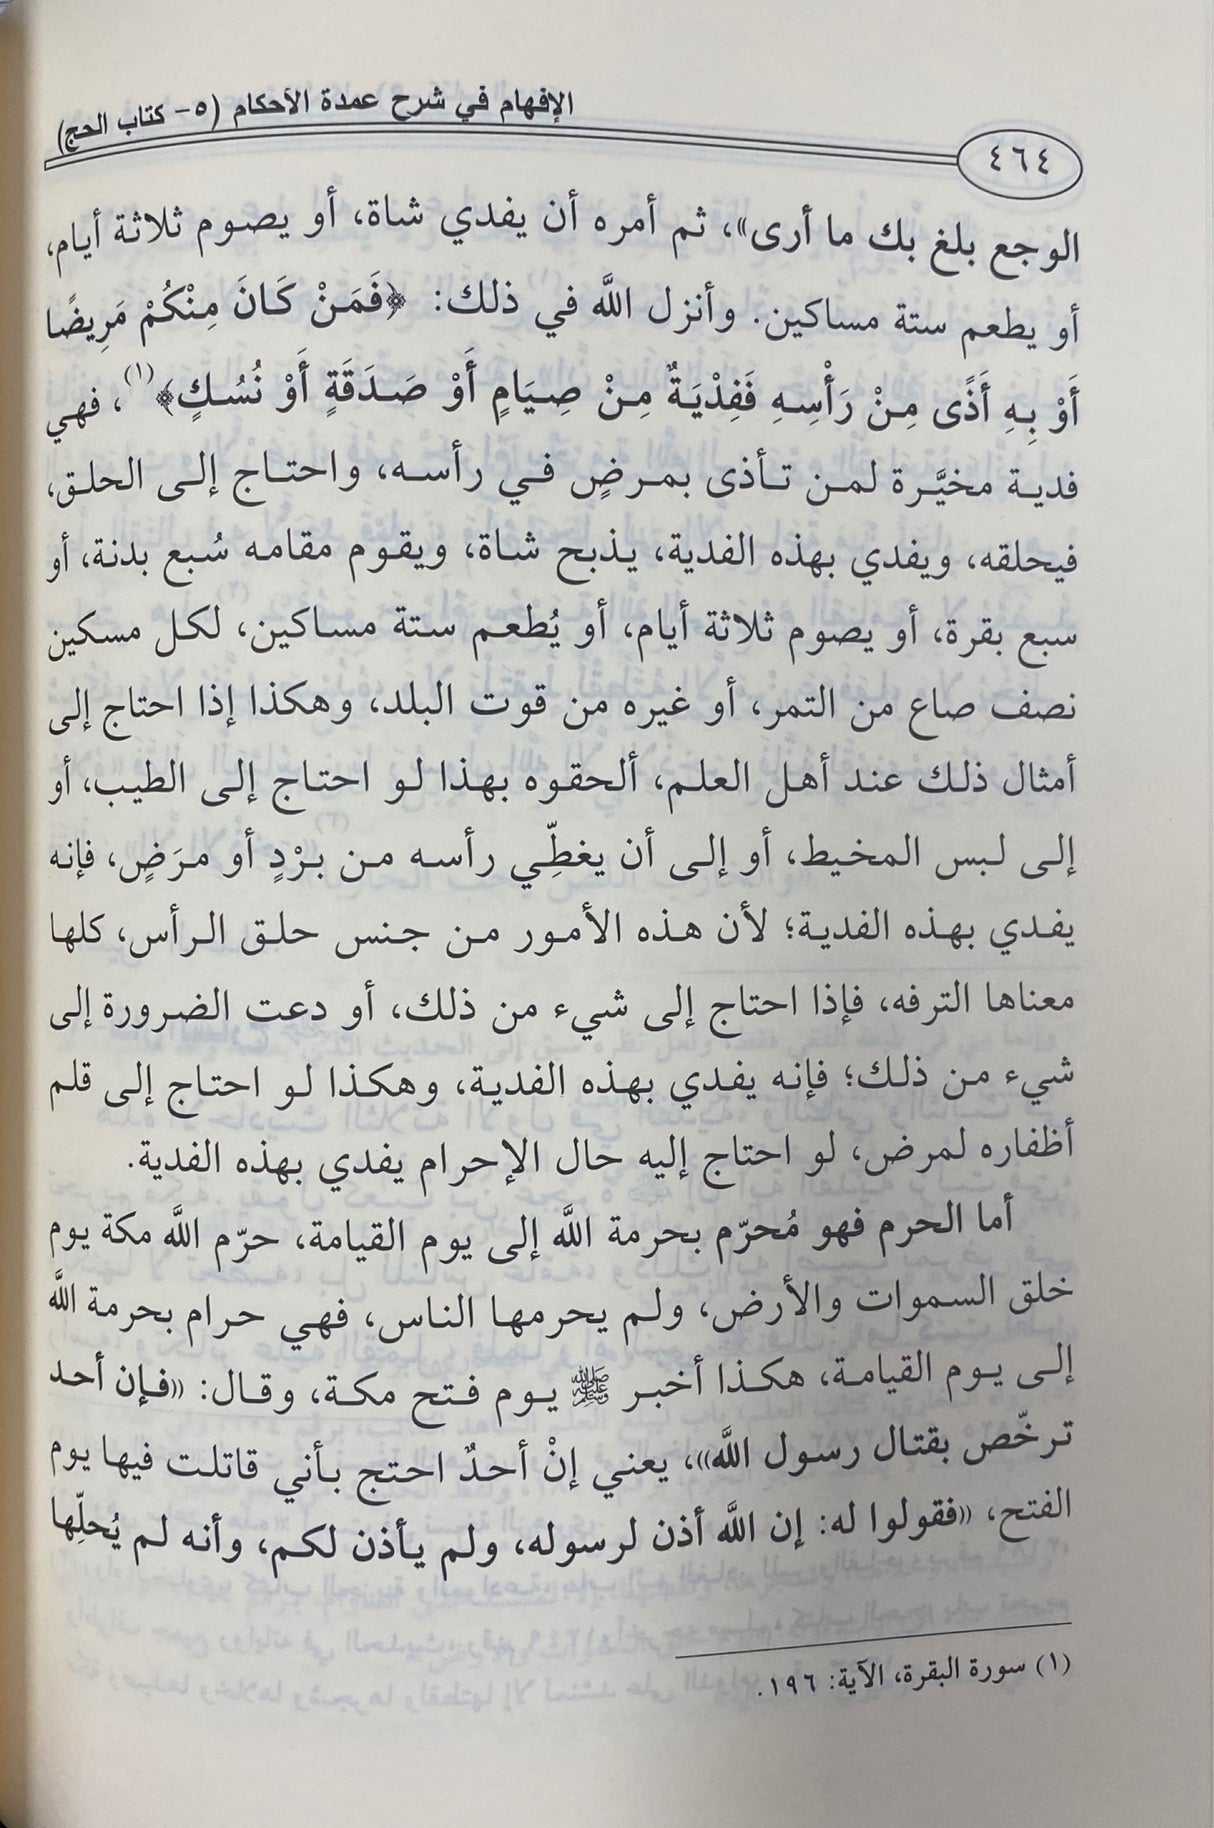 الإفهام في شرح عمدة الأحكام (٥- كتاب الحج)
٤٦٤
الوجع بلغ بك ما أرى»، ثم أمره أن يفدي شاة، أو يصوم ثلاثة أيام،
أو يطعم ستة مساكين. وأنزل اللَّه في ذلك: ﴿فَمَنْ كَانَ مِنْكُمْ مَرِيضًا
أَوْ بِهِ أَذًى مِنْ رَأْسِهِ فَفِدْيَةٌ مِنْ صِيَامٍ أَوْ صَدَقَةٍ أَوْ نُسُكٍ﴾(١)، فهي
فدية مخيَّرة لمن تأذى بمرضٍ في رأسه، واحتاج إلى الحلق،
فيحلقه، ويفدي بهذه الفدية، يذبح شاة، ويقوم مقامه سُبع بدنة، أو
سبع بقرة، أو يصوم ثلاثة أيام، أو يُطعم ستة مساكين، لكل مسكين
نصف صاع من التمر، أو غيره من قوت البلد، وهكذا إذا احتاج إلى
أمثال ذلك عند أهل العلم، ألحقوه بهذا لو احتاج إلى الطيب، أو
إلى لبس المخيط، أو إلى أن يغطِّي رأسه من برْدٍ أو مرَضٍ، فإنه
يفدي بهذه الفدية؛ لأن هذه الأمور من جنس حلق الرأس، كلها
معناها الترفه، فإذا احتاج إلى شيء من ذلك، أو دعت الضرورة إلى
شيء من ذلك؛ فإنه يفدي بهذه الفدية، وهكذا لو احتاج إلى قلم
أظفاره لمرض، لو احتاج إليه حال الإحرام يفدي بهذه الفدية.
أما الحرم فهو مُحرّم بحرمة اللَّه إلى يوم القيامة، حرّم اللَّه مكة يوم
خلق السموات والأرض، ولم يحرمها الناس، فهي حرام بحرمة اللَّه
إلى يوم القيامة، هكذا أخبر ﷺ يوم فتح مكة، وقال: «فإن أحد
ترخّص بقتال رسول اللَّه»، يعني إنْ أحدٌ احتج بأني قاتلت فيها يوم
الفتح، «فقولوا له: إن اللَّه أذن لرسوله، ولم يأذن لكم، وأنه لم يُحلّها
(١) سورة البقرة، الآية: ١٩٦.